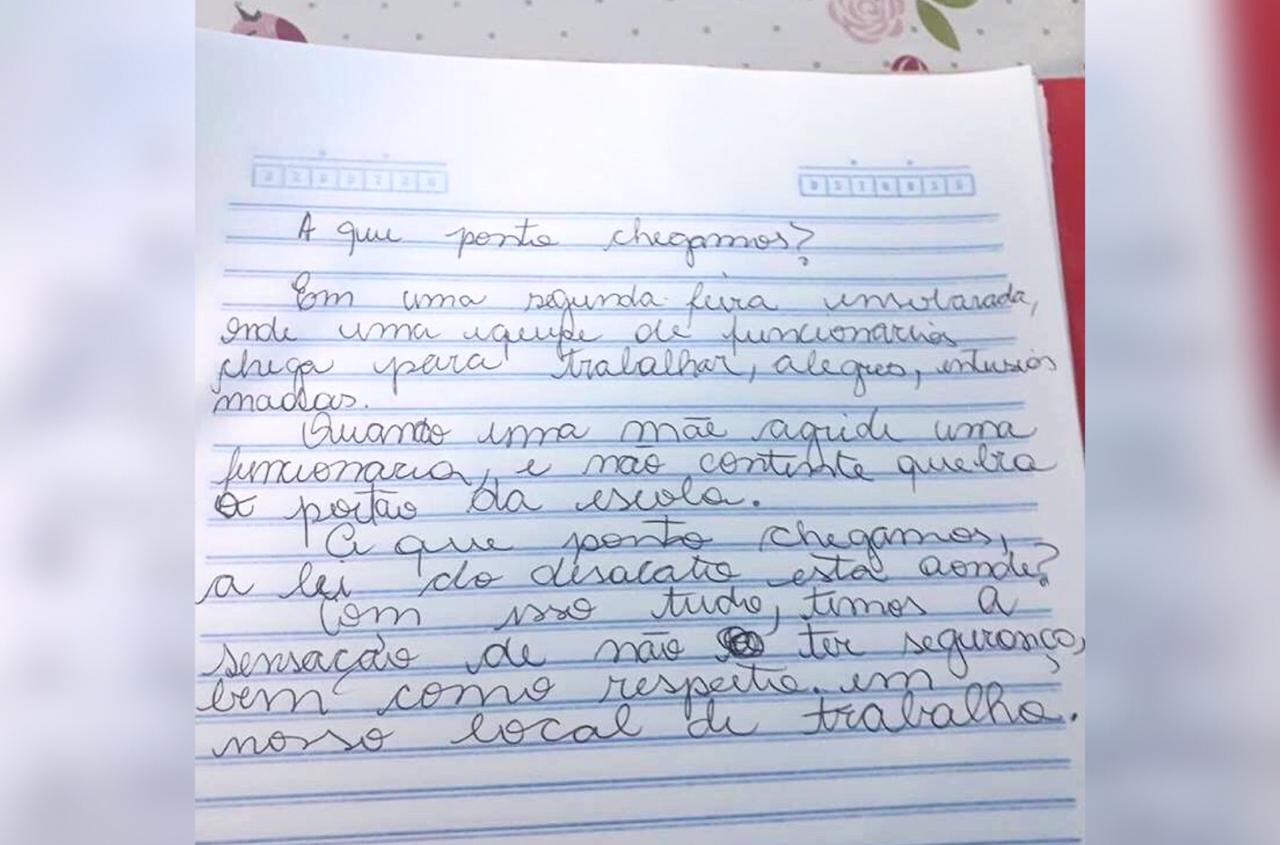 A que ponto chegamos?
Em uma segunda-feira ensolarada,
onde uma equipe de funcionários
chega para trabalhar, alegres, entusias
madas.
Quando uma mãe agride uma
funcionaria, e não contente quebra
o portão da escola.
A que ponto chegamos,
a lei do desacato esta aonde?
Com isso tudo, temos a
sensação de não ter segurança,
bem como respeito em
nosso local de trabalho.